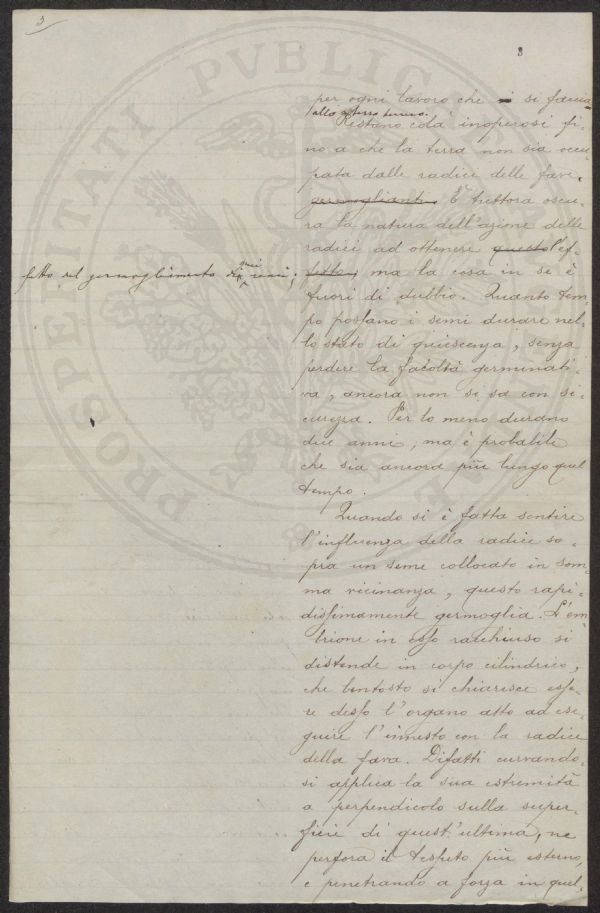 3
8
per ogni lavoro che si faccia
allo stesso terreno.
Restano colà inoperosi fi-
no a che la terra non sia occu-
pata dalle radici delle fave
germoglianti. È tuttora oscu-
ra la natura dell'azione delle
radici ad ottenere questo l'ef-
fetto del germogliamento di quei semi;
fetto, ma la cosa in se è
fuori di dubbio. Quanto tem-
po possano i semi durare nel-
lo stato di quiescenza, senza
perdere la facoltà germinati-
va, ancora non si sa con si-
curezza. Per lo meno durano
due anni, ma è probabile
che sia ancora più lungo quel
tempo.
Quando si è fatta sentire
l'influenza della radice so-
pra un seme collocato in som-
ma vicinanza, questo rapi-
dissimamente germoglia. L'em-
brione in esso racchiuso si
distende in corpo cilindrico,
che bentosto si chiarisce esse-
re desso l'organo atto ad ese-
guire l'innesto con la radice
della fava. Difatti curvando-
si applica la sua estremità
a perpendicolo sulla super-
ficie di quest'ultima, ne
perfora il tessuto più esterno,
e penetrando a forza in quel-
PROSPERITATI PVBLICAE